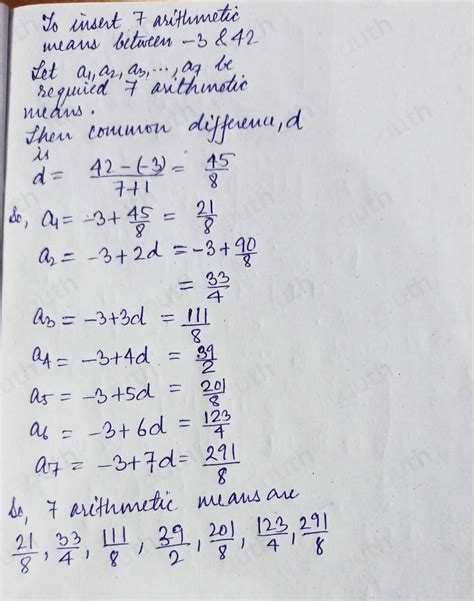 To insert 7 arithmetic
means between -3 & 42
Let a₁, a₂, a₃, ..., a₇ be
required 7 arithmetic
means.
Then common difference, d
is
d = (42-(-3))/(7+1) = 45/8
So, a₁ = -3 + 45/8 = 21/8
a₂ = -3+2d = -3 + 90/8
= 33/4
a₃ = -3+3d = 111/8
a₄ = -3+4d = 39/2
a₅ = -3+5d = 201/8
a₆ = -3+6d = 123/4
a₇ = -3+7d = 291/8
So, 7 arithmetic means are
21/8, 33/4, 111/8, 39/2, 201/8, 123/4, 291/8